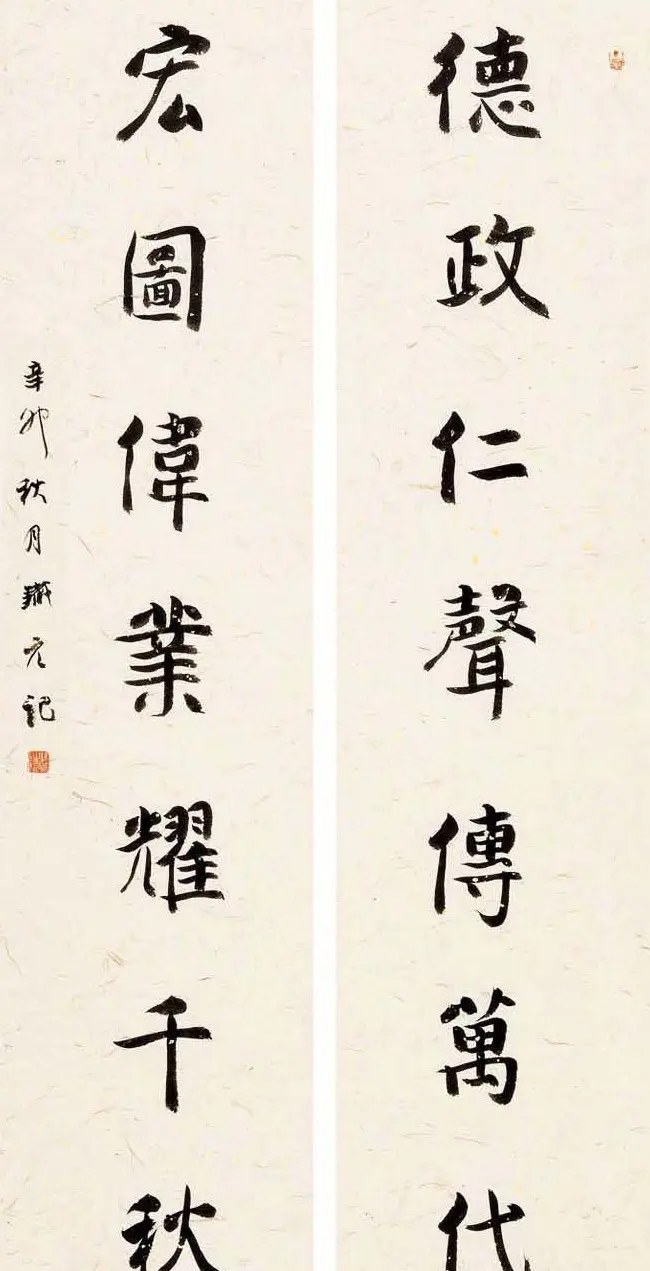 德政仁聲傳萬代
宏圖偉業耀千秋
辛卯秋月
記